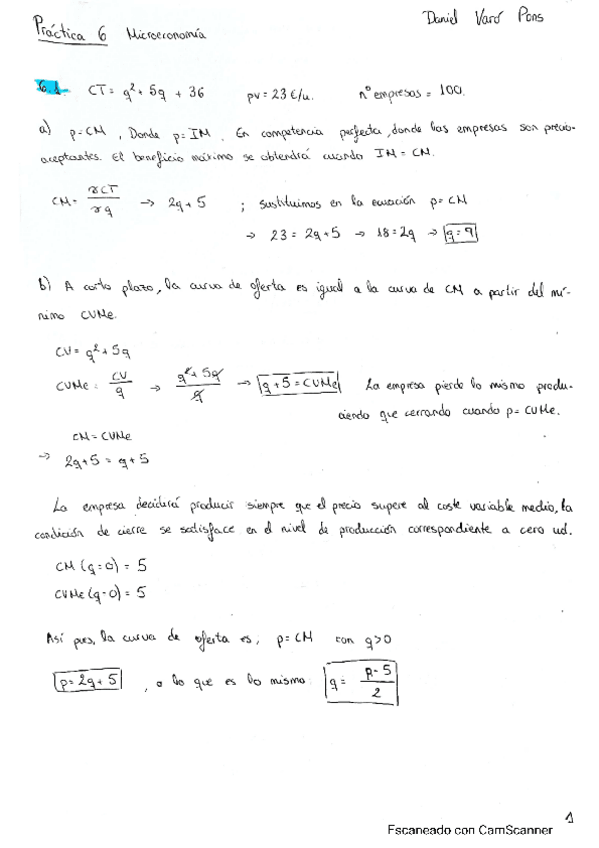 Daniel Varó Pons
Práctica 6 Microeconomía
6.1. CT = q² + 5q + 36 pv = 23 €/u. nº empresas = 100.
a) p = CM, Donde p = IM. En competencia perfecta, donde las empresas son precio-
aceptantes. El beneficio máximo se obtendrá cuando IM = CM.
CM = γCT/γq → 2q + 5 ; sustituimos en la ecuación p = CM
→ 23 = 2q + 5 → 18 = 2q → q = 9
b) A corto plazo, la curva de oferta es igual a la curva de CM a partir del mí-
nimo CVMe.
CV = q² + 5q
CVMe = CV/q → q² + 5q/q → q + 5 = CVMe La empresa pierde lo mismo produ-
ciendo que cerrando cuando p = CVMe.
CM = CVMe
→ 2q + 5 = q + 5
La empresa decidirá producir siempre que el precio supere al coste variable medio, la
condición de cierre se satisface en el nivel de producción correspondiente a cero ud.
CM (q=0) = 5
CVMe (q=0) = 5
Así pues, la curva de oferta es, p = CM con q>0
p = 2q + 5 , o lo que es lo mismo: q = p - 5/2
1
Escaneado con CamScanner